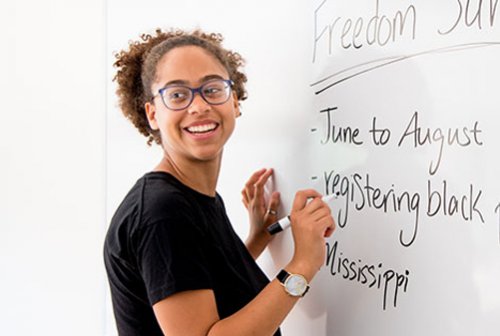 Freedom Su
- June to August
- registering black
Mississippi